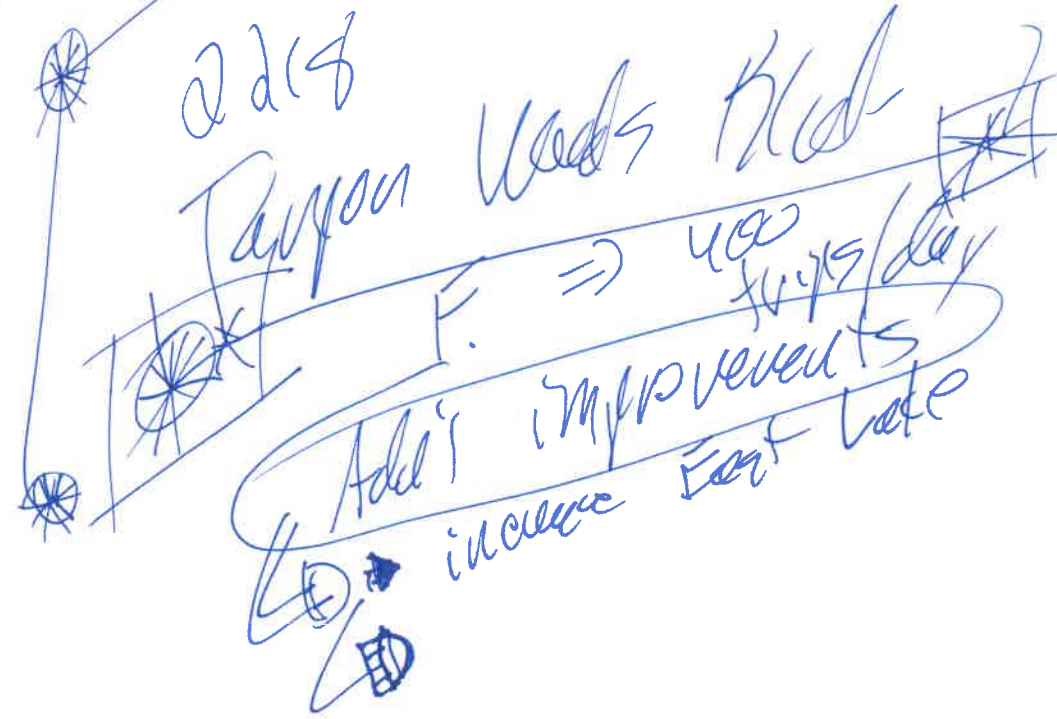 Woods Blvd
F. => 400
trips/day
Add'l improvements
increase East Lake